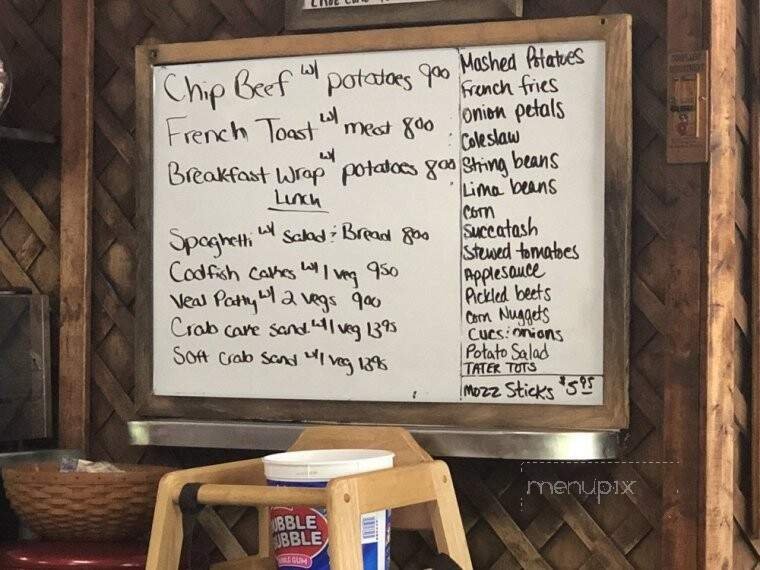 Chip Beef w/ potatoes 900
French Toast w/ meat 800
Breakfast Wrap w/ potatoes 800
Lunch
Spaghetti w/ Salad & Bread 800
Codfish Cakes w/ 1 veg 950
Veal Patty w/ 2 vegs 900
Crab cake sand. w/ 1 veg 1395
Soft Crab Sand w/ 1 veg 1395
Mashed Potatoes
French fries
onion petals
Coleslaw
String beans
Lima beans
Corn
Succatash
Stewed tomatoes
Applesauce
Pickled beets
Corn Nuggets
Cucs & onions
Potato Salad
TATER TOTS
Mozz Sticks $5.95
BUBBLE
BUBBLE
GUM
menupix